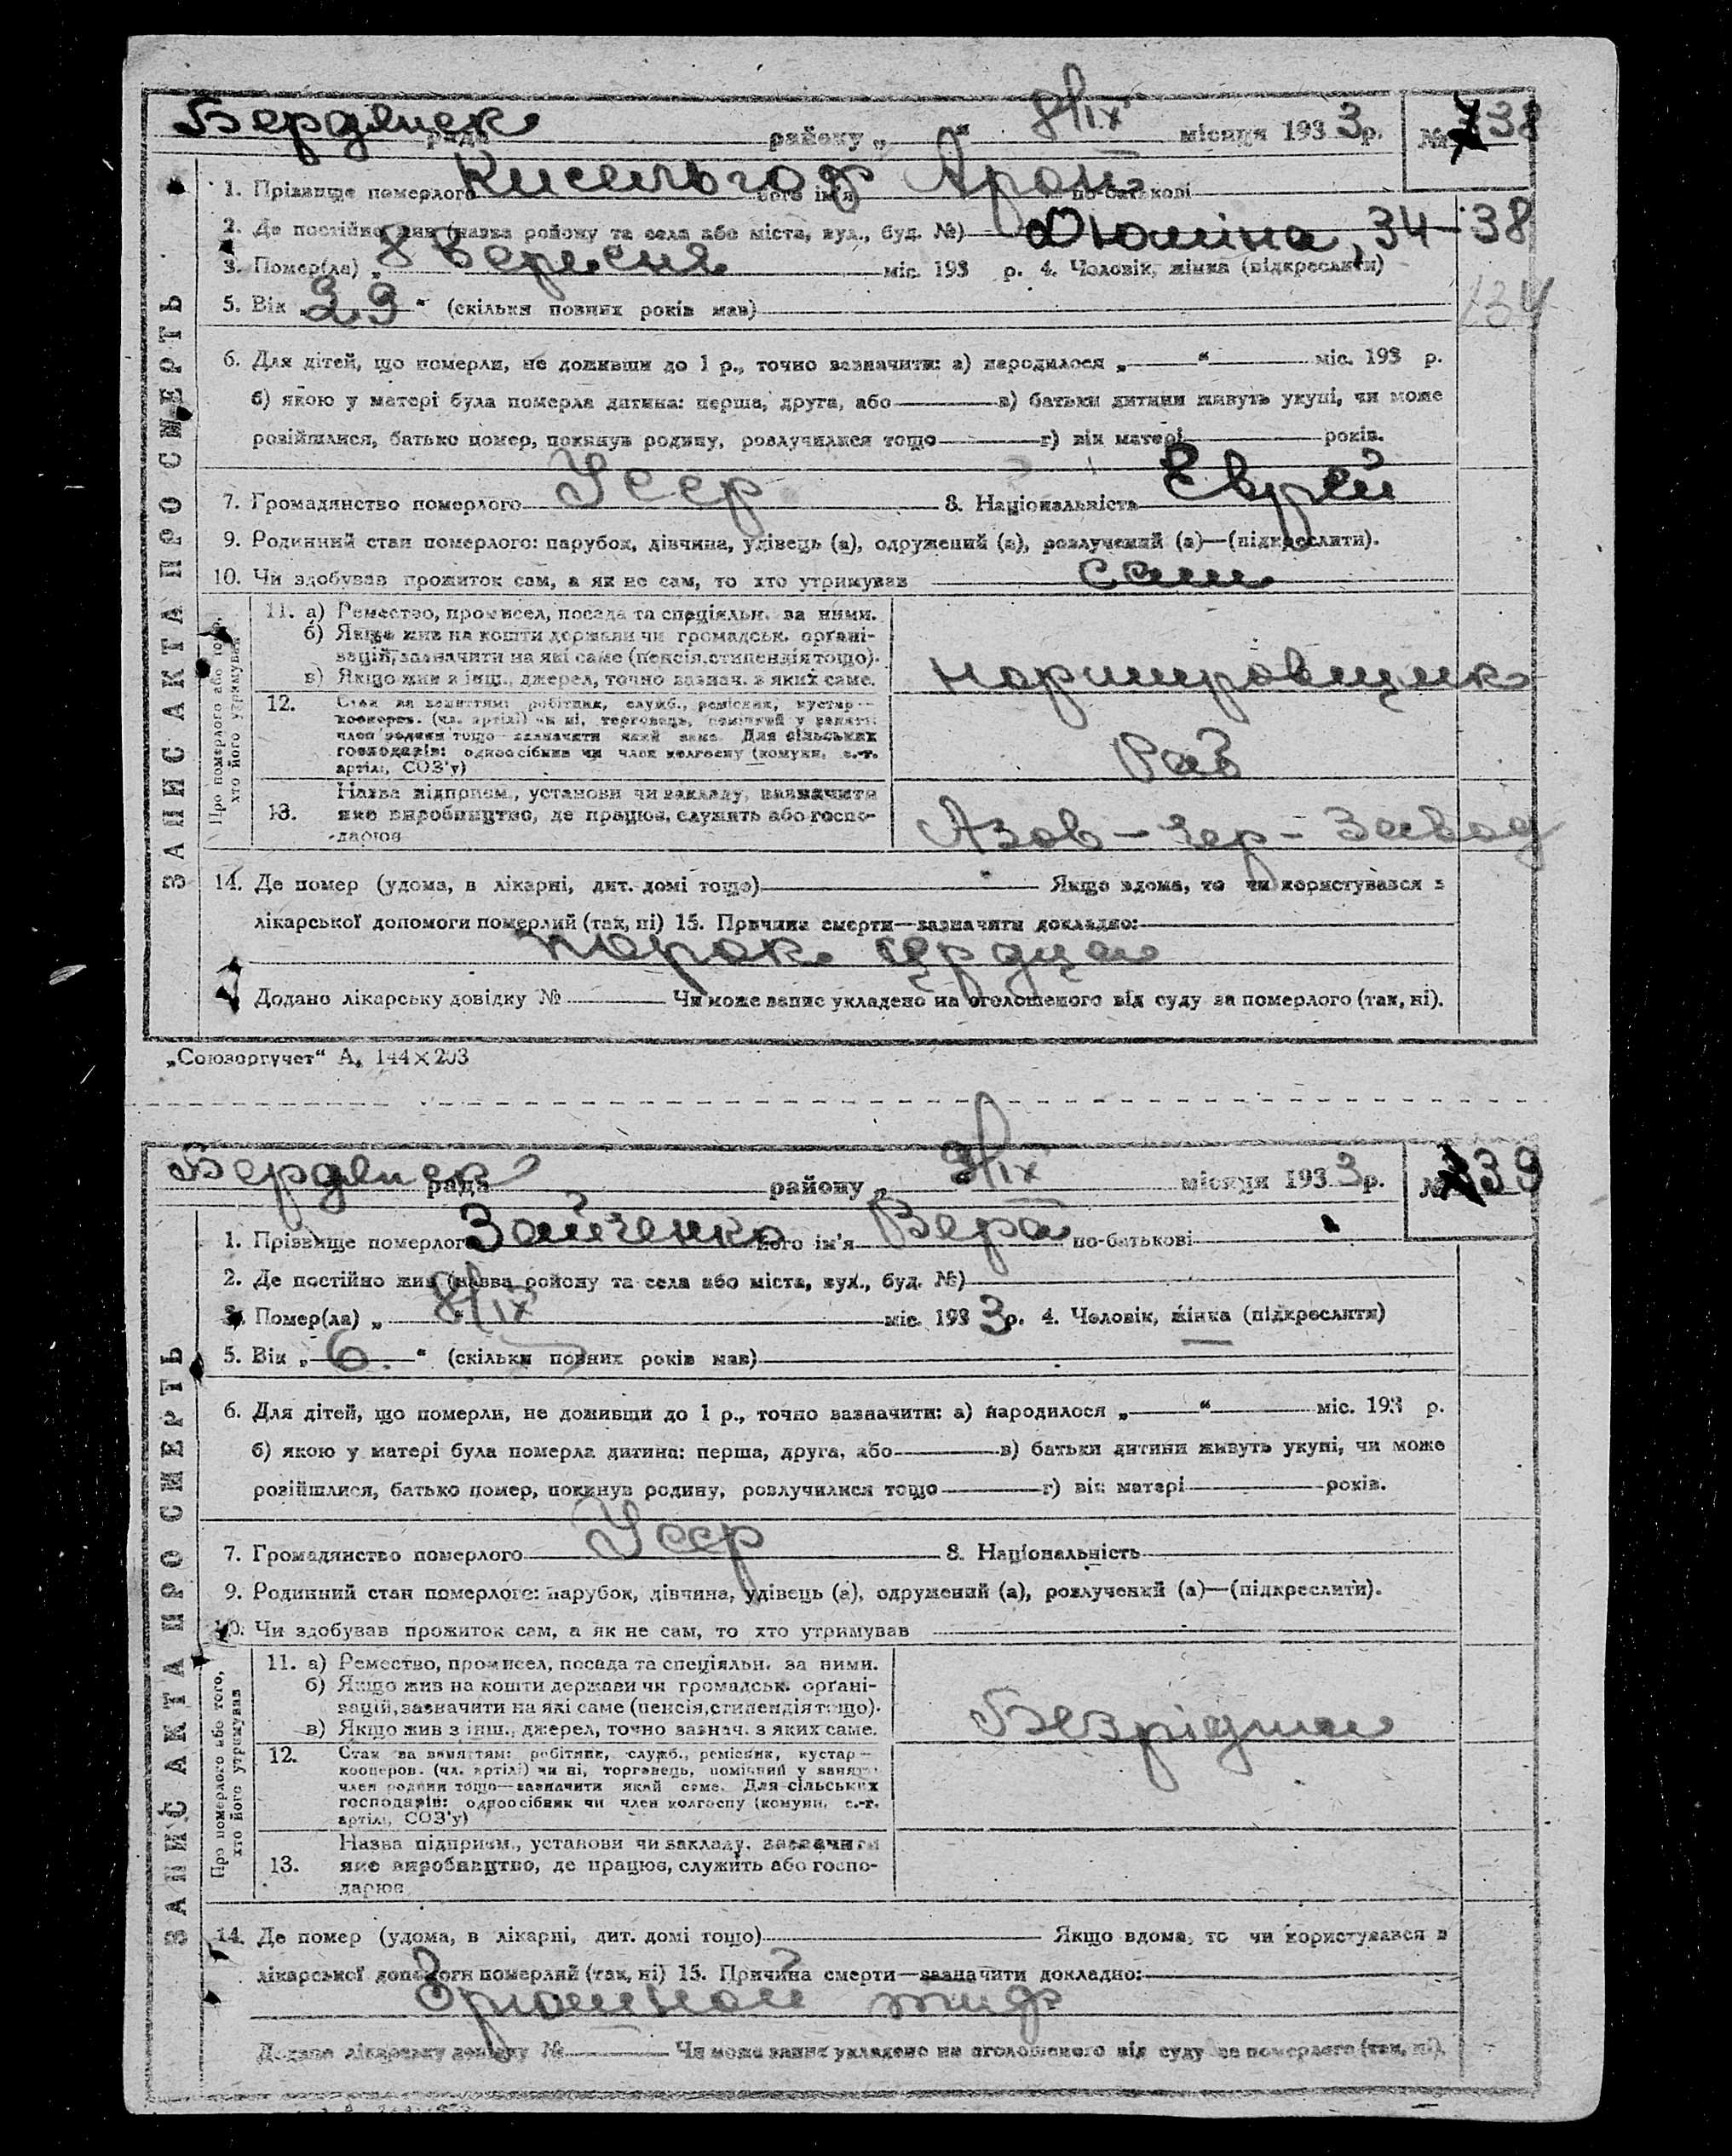 Бердянск рада району „ “ 8/IX місяця 1933р. № 738
ЗАПИС АКТА ПРО СМЕРТЬ
1. Прізвище померлого Кисельгоф його ім'я Арон по-батькові
2. Де постійно жив (назва району та села або міста, вул., буд. №) Дюміна, 34-38
3. Помер(ла) „ 8 Вересня міс. 193 р. 4. Чоловік, жінка (підкреслити)
134
5. Вік „ 29 “ (скільки повних років мав)
6. Для дітей, що померли, не доживши до 1 р., точно зазначити: а) народилося „ “ міс. 193 р.
б) якою у матері була померла дитина: перша, друга, або в) батьки дитини живуть укупі, чи може
розійшлися, батько помер, покинув родину, розлучилися тощо г) вік матері років.
7. Громадянство померлого Усср 8. Національність Еврей
9. Родинний стан померлого: парубок, дівчина, удівець (а), одружений (а), розлучений (а)—(підкреслити).
10. Чи здобував прожиток сам, а як не сам, то хто утримував сам
Про померлого або того, хто його утримував
11. а) Ремество, промисел, посада та спеціяльн. за ними.
б) Якщо жив на кошти держави чи громадськ. орґані-
зацій, зазначити на які саме (пенсія, стипендія тощо).
в) Якщо жив з інш., джерел, точно зазнач. з яких саме.
нормировщик
12. Стан за заняттям: робітник, служб., ремісник, кустар—
кооперов. (чл. артілі) чи ні, торговець, помічний у занятт.
член родини тощо—зазначити який саме. Для сільських
господарів: одноосібник чи член колгоспу (комуни, с.-г.
артілі, СОЗ'у)
Раб
13. Назва підприєм., установи чи закладу, зазначити
яке виробництво, де працює, служить або госпо-
дарює
Азов-Чер-Завод
14. Де помер (удома, в лікарні, дит. домі тощо) Якщо вдома, то чи користувався з
лікарської допомоги померлий (так, ні) 15. Причина смерти—зазначити докладно:
порок сердца
Додано лікарську довідку № Чи може запис укладено на оголошеного від суду за померлого (так, ні).
„Союзоргучет“ А, 144×203
Бердянск рада району „ 9/IX місяця 1933р. № 739
ЗАПИС АКТА ПРО СМЕРТЬ
1. Прізвище померлого Зайченко його ім'я Вера по-батькові
2. Де постійно жив (назва району та села або міста, вул., буд. №)
3. Помер(ла) „ 8/IX міс. 1933р. 4. Чоловік, жінка (підкреслити)
5. Вік „ 6. “ (скільки повних років мав)
6. Для дітей, що померли, не доживши до 1 р., точно зазначити: а) народилося „ “ міс. 193 р.
б) якою у матері була померла дитина: перша, друга, або в) батьки дитини живуть укупі, чи може
розійшлися, батько помер, покинув родину, розлучилися тощо г) вік матері років.
7. Громадянство померлого Усср 8. Національність
9. Родинний стан померлого: парубок, дівчина, удівець (а), одружений (а), розлучений (а)—(підкреслити).
10. Чи здобував прожиток сам, а як не сам, то хто утримував
Про померлого або того, хто його утримував
11. а) Ремество, промисел, посада та спеціяльн. за ними.
б) Якщо жив на кошти держави чи громадськ. орґані-
зацій, зазначити на які саме (пенсія, стипендія тощо).
в) Якщо жив з інш., джерел, точно зазнач. з яких саме.
Безрідная
12. Стан за заняттям: робітник, служб., ремісник, кустар—
кооперов. (чл. артілі) чи ні, торговець, помічний у занятт.
член родини тощо—зазначити який саме. Для сільських
господарів: одноосібник чи член колгоспу (комуни, с.-г.
артілі, СОЗ'у)
13. Назва підприєм., установи чи закладу, зазначити
яке виробництво, де працює, служить або госпо-
дарює
14. Де помер (удома, в лікарні, дит. домі тощо) Якщо вдома, то чи користувався з
лікарської допомоги померлий (так, ні) 15. Причина смерти—зазначити докладно:
тиф
Додано лікарську довідку № Чи може запис укладено на оголошеного від суду за померлого (так, ні).